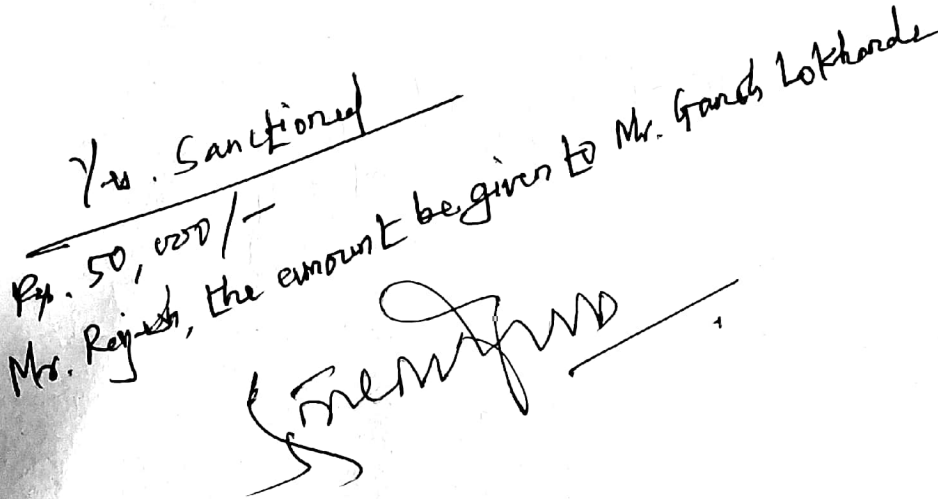 Yes. Sanctioned
Rs. 50,000/-
Mr. Rajesh, the amount be given to Mr. Ganesh Lokhande